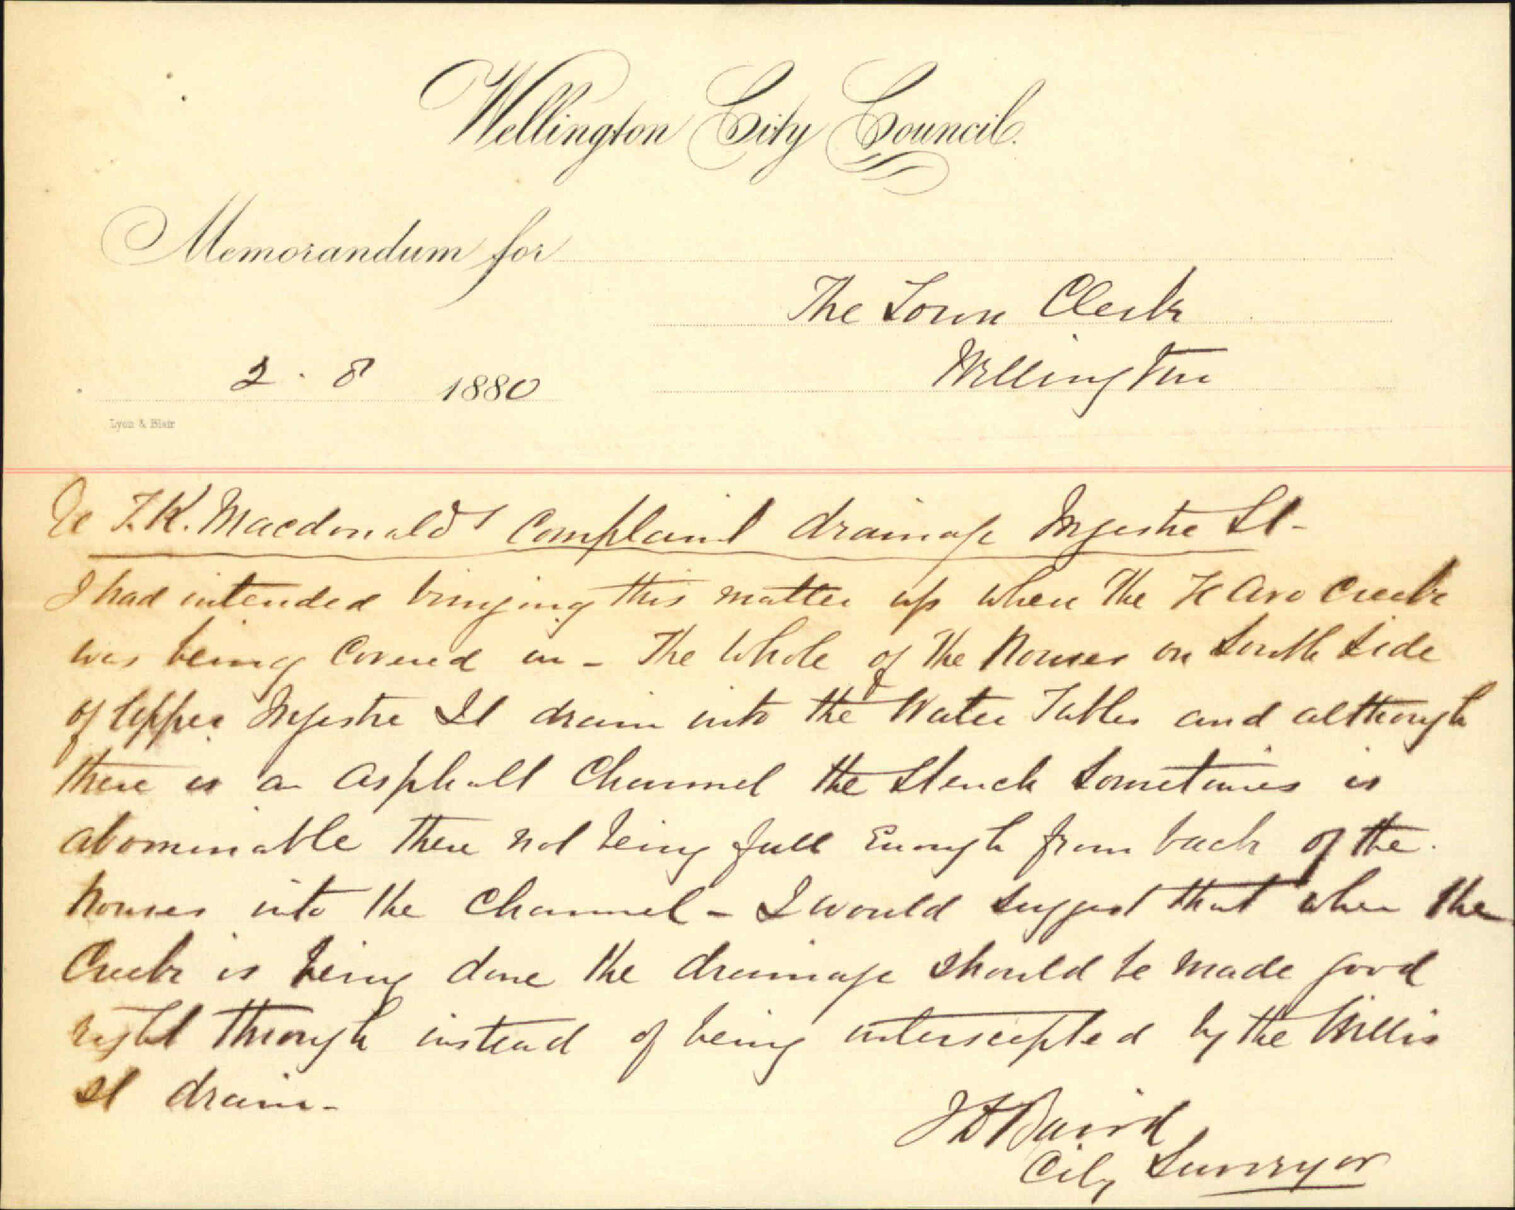 Wellington City Council.
Memorandum for
The Town Clerk
Wellington
2 . 8 1880
Lyon & Blair
Re T. K. Macdonald's Complaint drainage Ingestre St -
I had intended bringing this matter up when the Te Aro Creek
was being Covered in - The whole of the Houses on South Side
of Upper Ingestre St drain into the Water Tables and although
there is a Asphalt Channel the Stench Sometimes is
abominable there not being fall Enough from back of the
Houses into the Channel - I would suggest that when the
Creek is being done the drainage should be made good
right through instead of being interscepted by the Willis
St drain -
J D Baird
City Surveyor